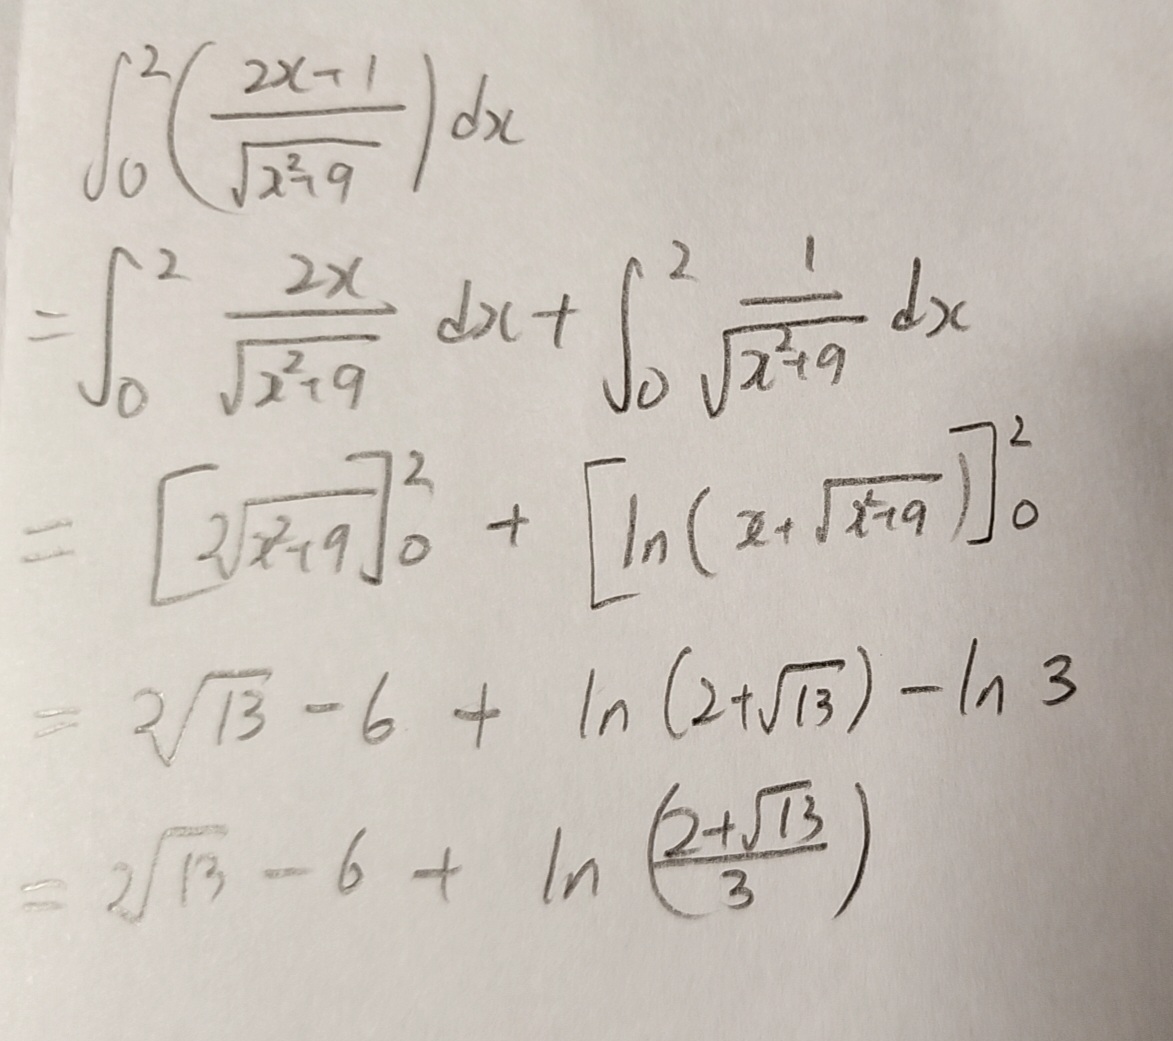 ∫₀² ( (2x+1) / √(x²+9) ) dx
= ∫₀² 2x / √(x²+9) dx + ∫₀² 1 / √(x²+9) dx
= [ 2√(x²+9) ]₀² + [ ln( x+√(x²+9) ) ]₀²
= 2√13 - 6 + ln (2+√13) - ln 3
= 2√13 - 6 + ln ( (2+√13) / 3 )